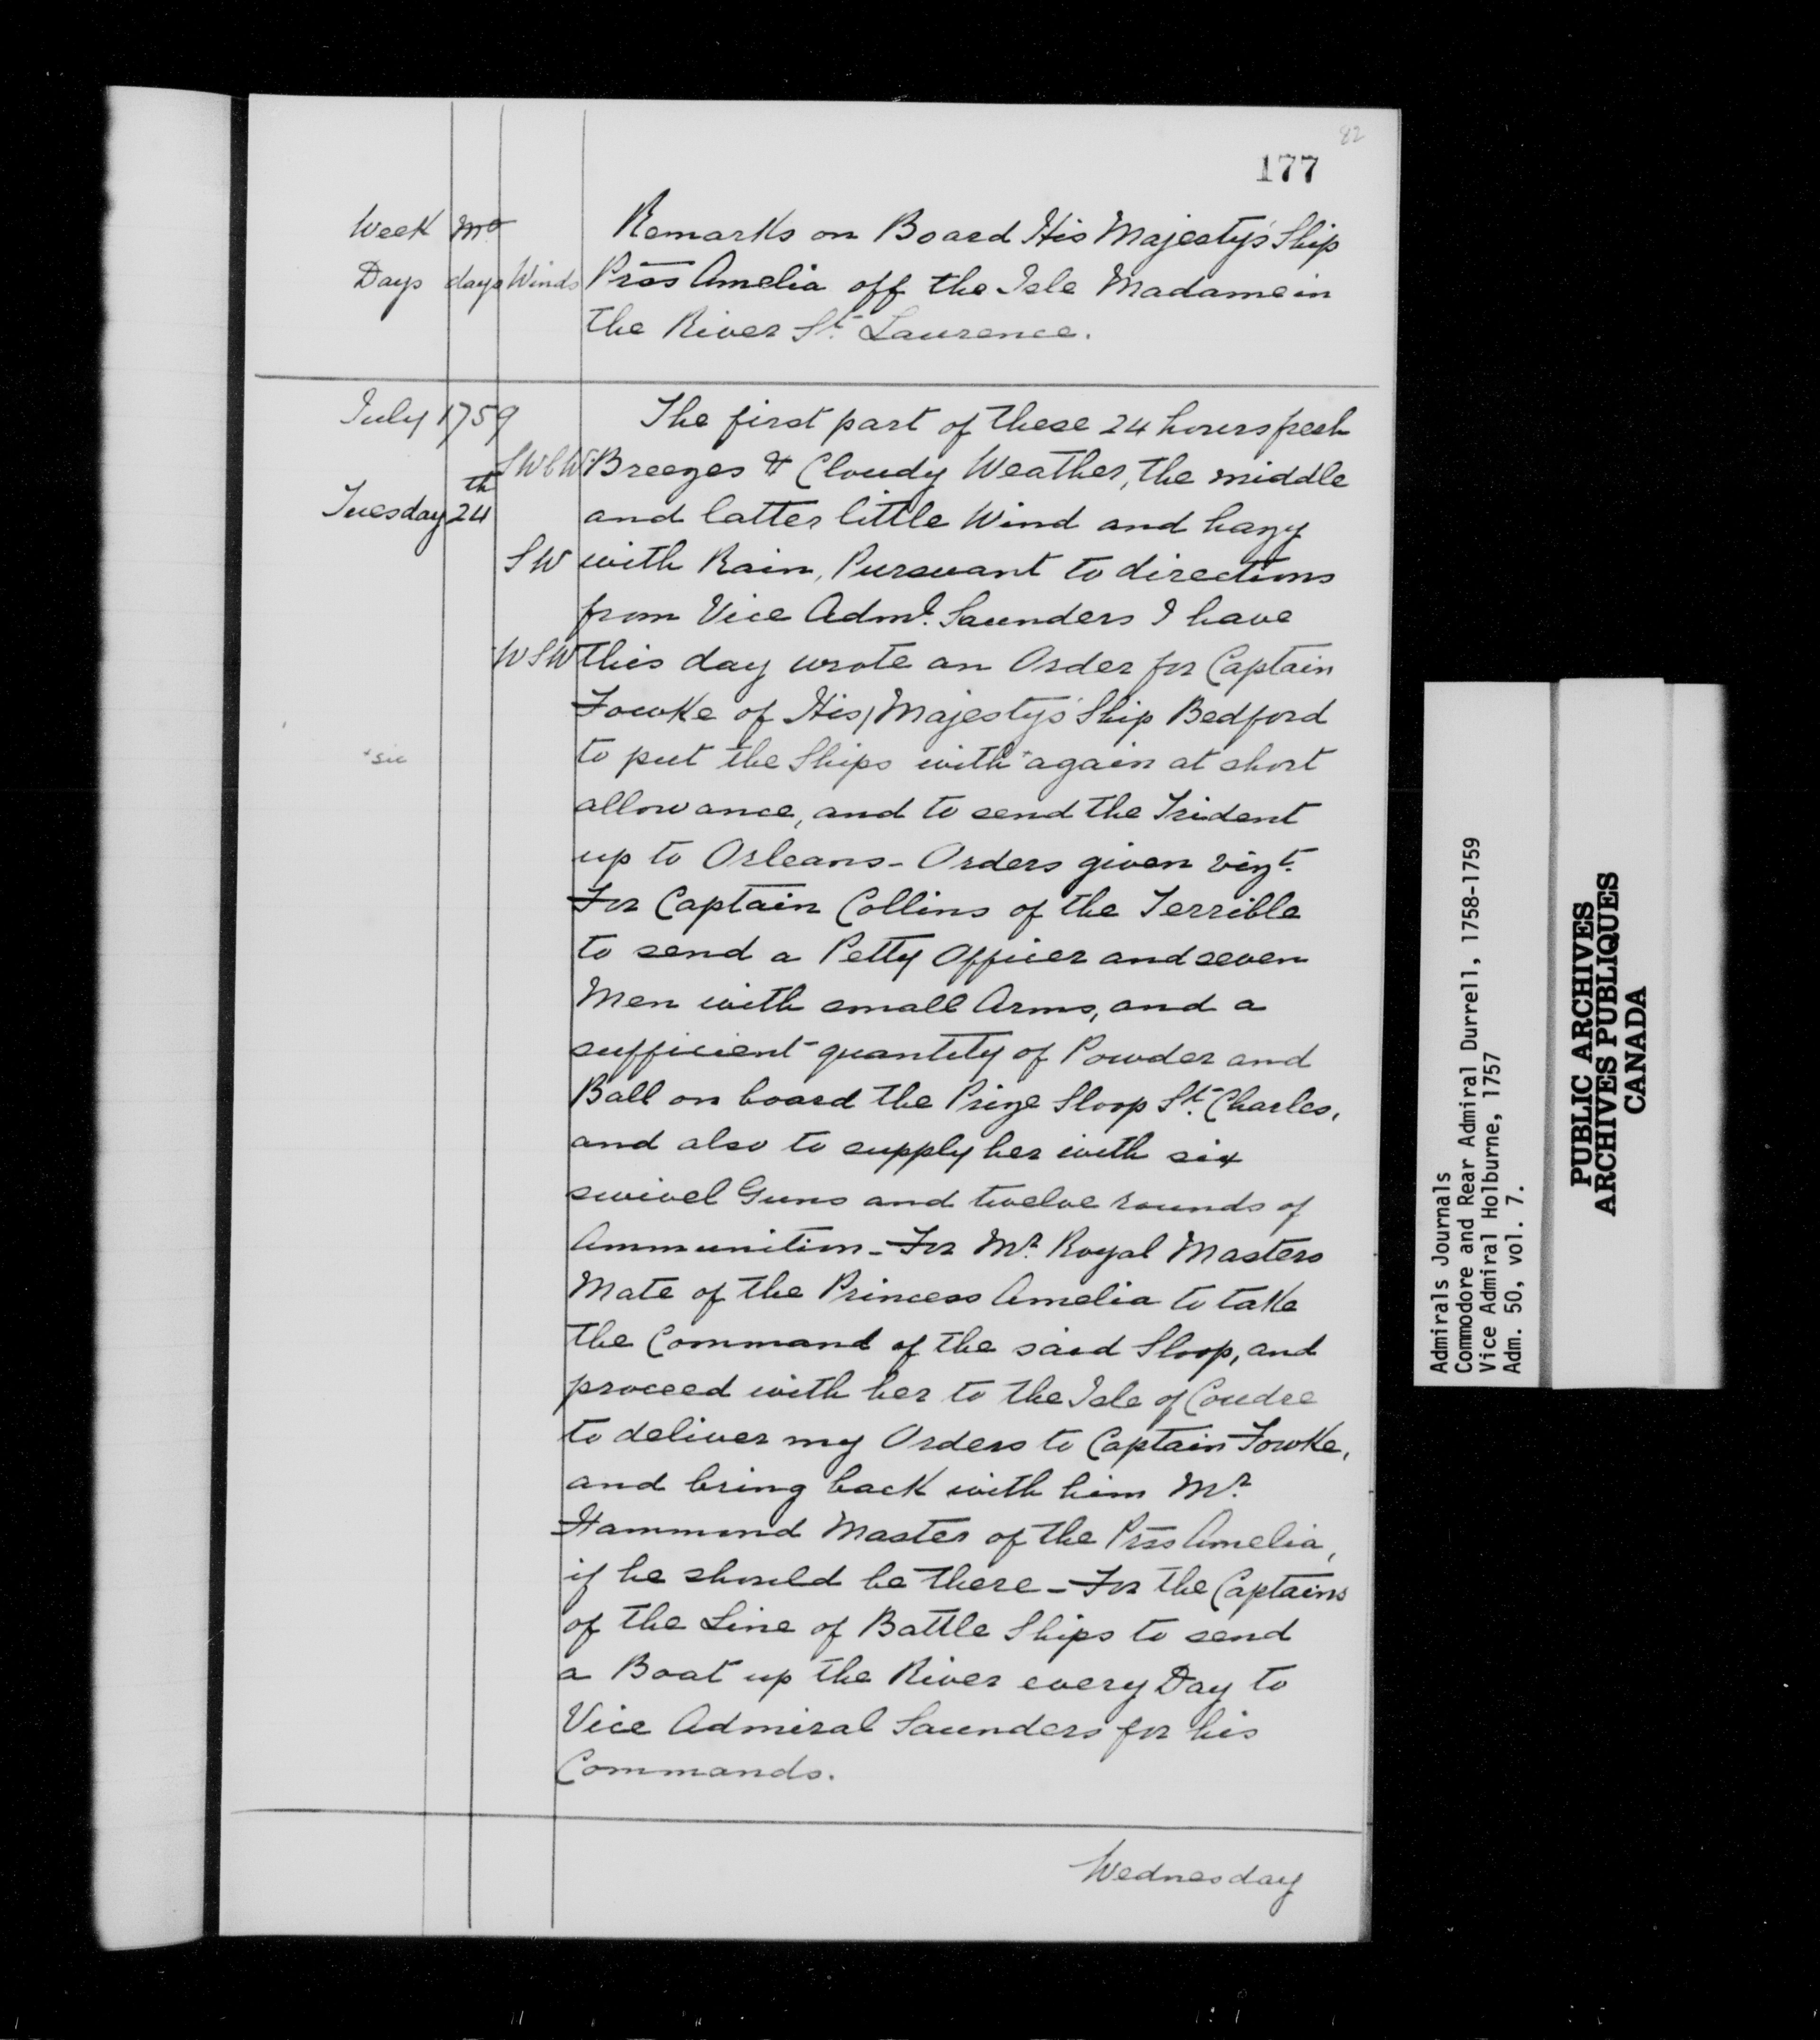 82
177
Week Mo Remarks on Board His Majesty's Ship
Days days Winds Prss Amelia off the Isle Madame in
the River St. Laurence.
July 1759 The first part of these 24 hours fresh
SWbW Breezes & Cloudy Weather, the middle
Tuesday 24th and latter little Wind and hazy
SW with Rain, Pursuant to directions
from Vice Adml. Saunders I have
WSW this day wrote an Order for Captain
Fowke of His Majesty's Ship Bedford
+sic to put the Ships with + again at short
allowance, and to send the Trident
up to Orleans - Orders given vizt.
For Captain Collins of the Terrible
to send a Petty Officer and seven
Men with small Arms, and a
sufficient quantity of Powder and
Ball on board the Prize Sloop St. Charles,
and also to supply her with six
swivel Guns and twelve rounds of
Ammunition - For Mr. Royal Masters
Mate of the Princess Amelia to take
the Command of the said Sloop, and
proceed with her to the Isle of Coudre
to deliver my Orders to Captain Fowke,
and bring back with him Mr.
Hammond Master of the Prss Amelia,
if he should be there - For the Captains
of the Line of Battle Ships to send
a Boat up the River every Day to
Vice Admiral Saunders for his
Commands.
Wednesday
Admirals Journals
Commodore and Rear Admiral Durrell, 1758-1759
Vice Admiral Holburne, 1757
Adm. 50, vol. 7.
PUBLIC ARCHIVES
ARCHIVES PUBLIQUES
CANADA